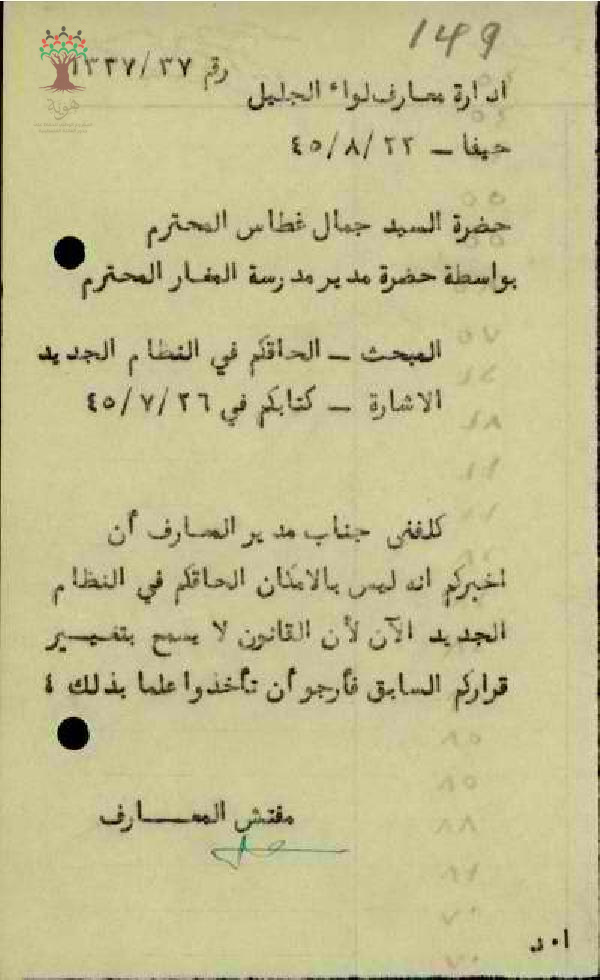 149
رقم ١٣٣٧/٣٧
ادارة معارف لواء الجليل
حيفا – ٤٥/٨/٢٢
حضرة السيد جمال غطاس المحترم
بواسطة حضرة مدير مدرسة المغار المحترم
المبحث – الحاقكم في النظام الجديد
الاشارة – كتابكم في ٤٥/٧/٢٦
كلفني جناب مدير المعارف أن
اخبركم انه ليس بالامكان الحاقكم في النظام
الجديد الآن لأن القانون لا يسمح بتغيير
قراركم السابق فأرجو أن تأخذوا علما بذلك ٤
مفتش المعـــارف
ا٠د
هوية